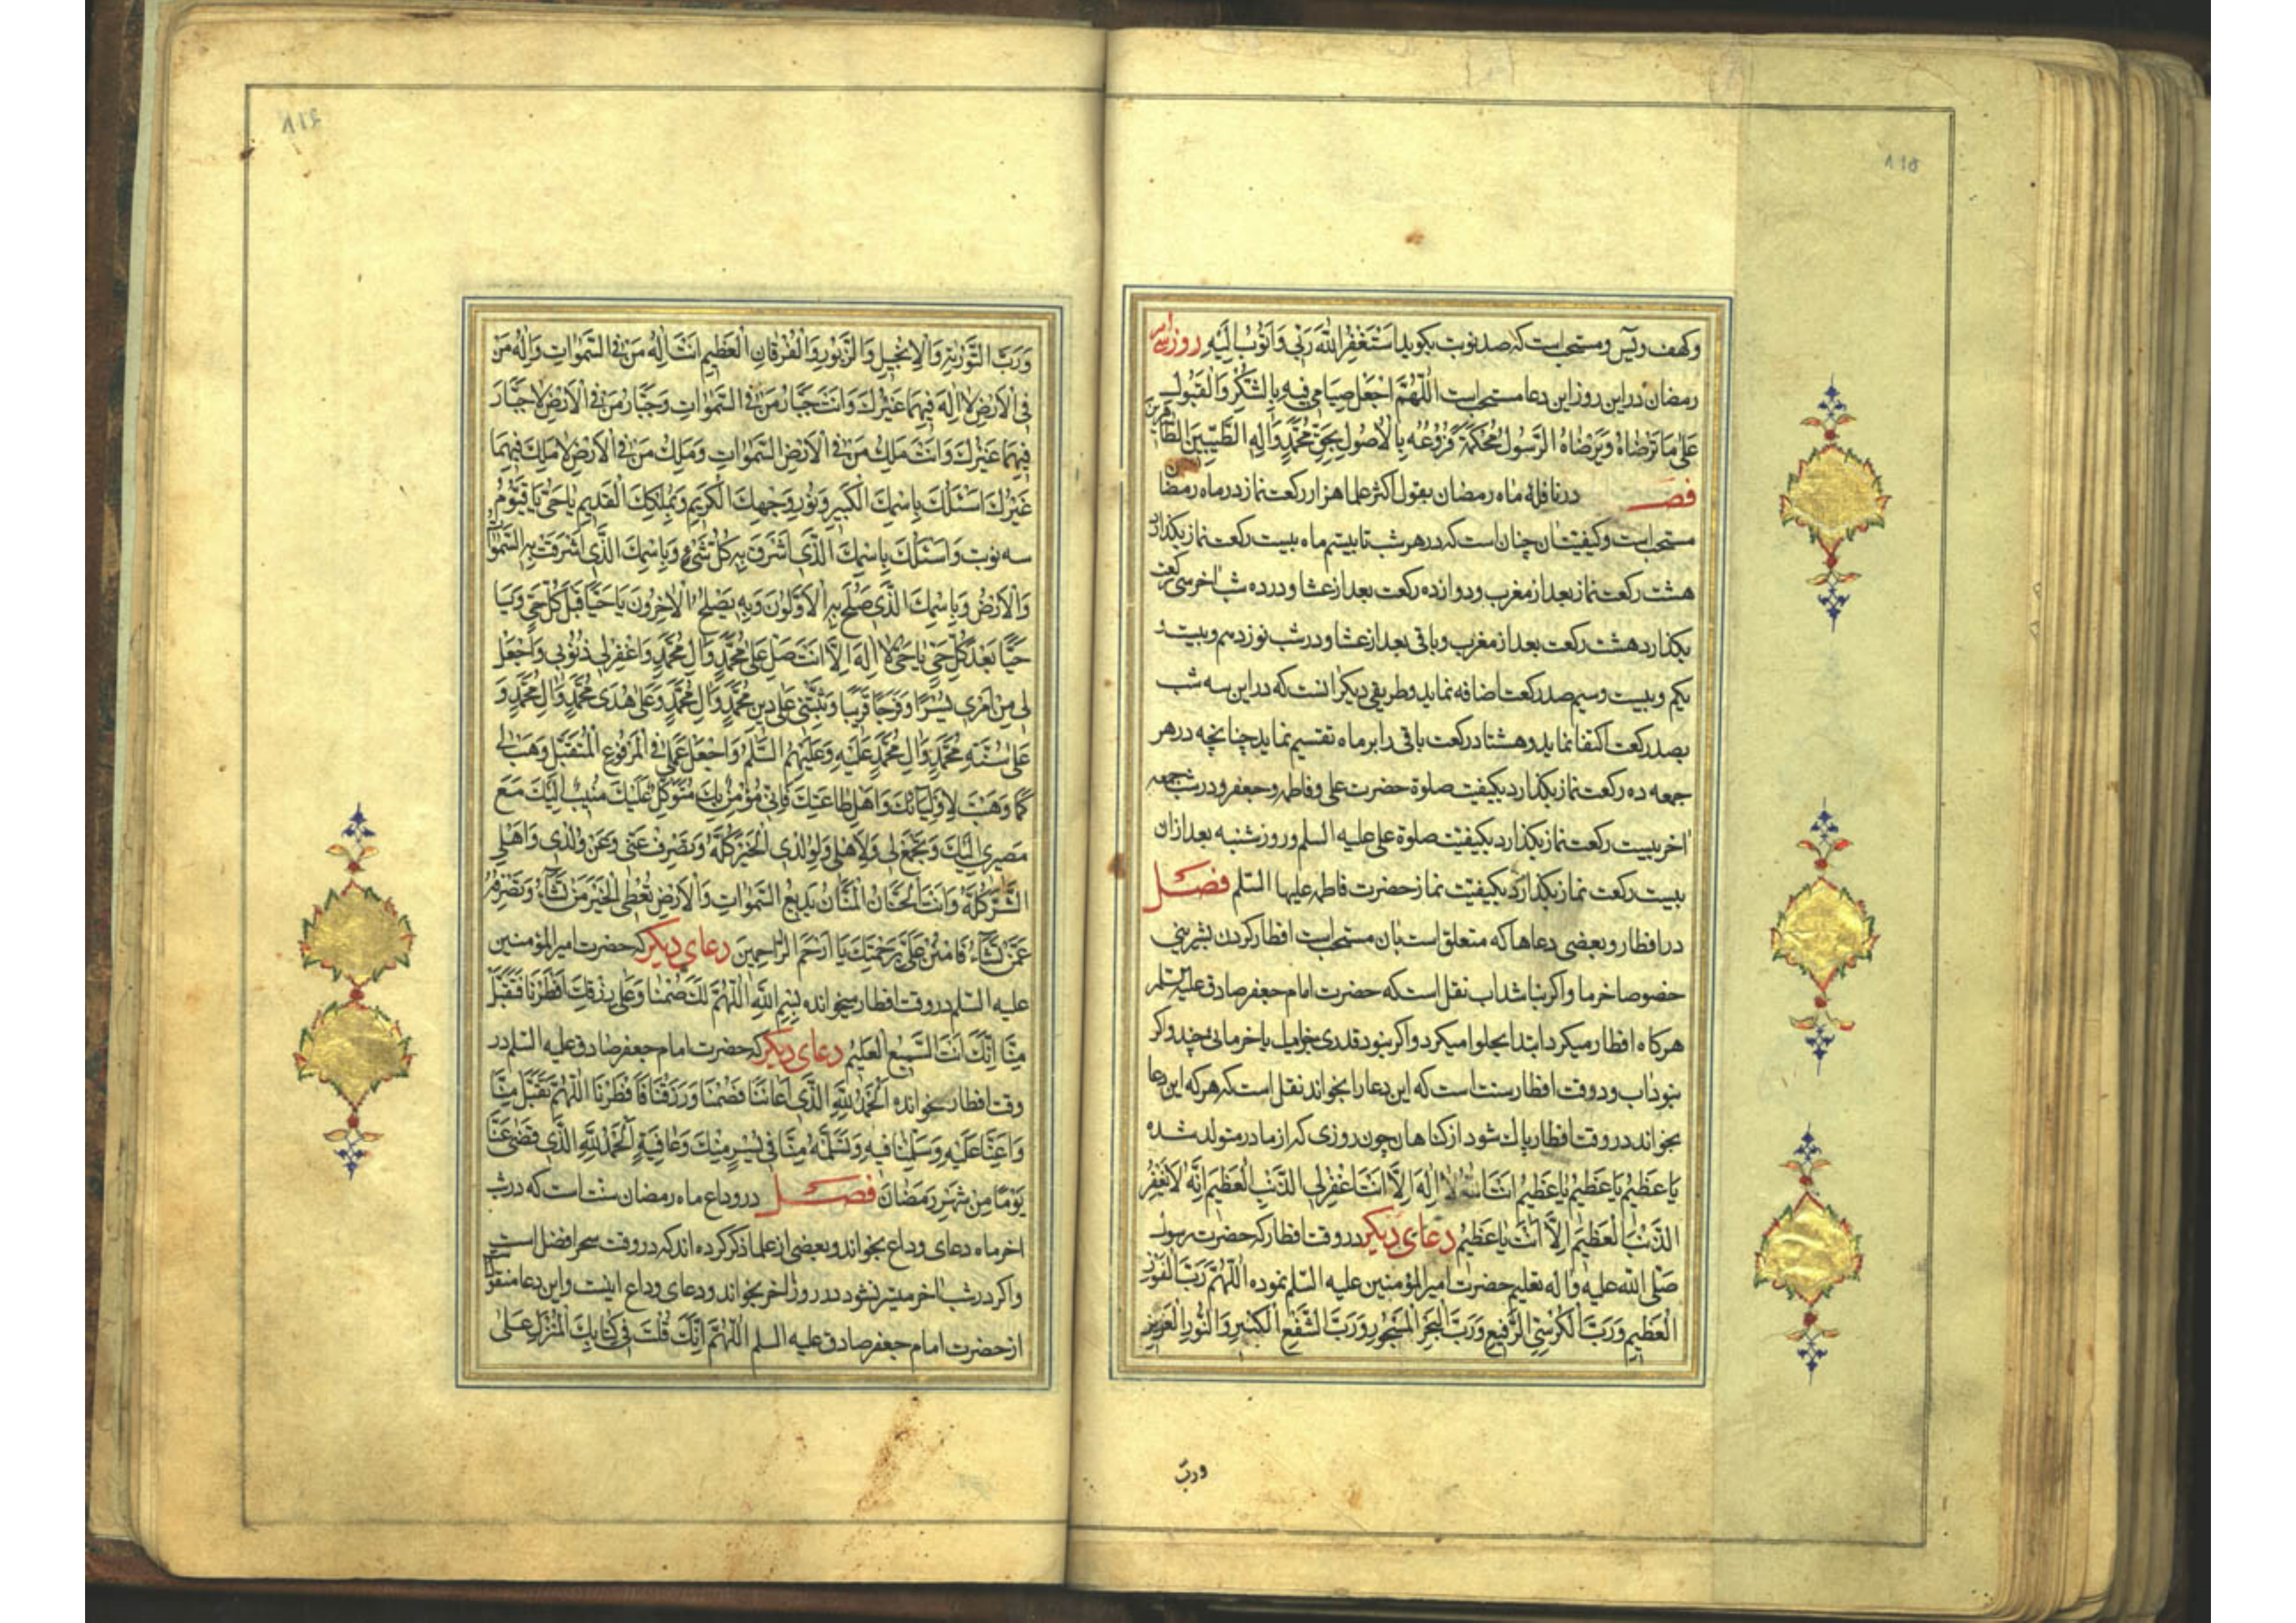 ۸۱۵
وکهف ویس ومستحب است که صد نوبت بکوید اَسْتَغْفِرُ اللّٰهَ رَبّی وَاَتُوبُ اِلَیْهِ روز سی
رمضان در این روز این دعا مستحب است اَللّٰهُمَّ اجْعَلْ صِیامی فیهِ بِالشُّکْرِ وَالْقَبُولِ
عَلیٰ ما تَرْضاهُ وَیَرْضاهُ الرَّسُولُ مُحْکَمَةً فُرُوعُهُ بِالْاُصُولِ بِحَقِّ مُحَمَّدٍ وَآلِهِ الطَّیِّبینَ الطّاهرین
فصـ در نافلهٔ ماه رمضان بقول اکثر علما هزار رکعت نماز در ماه رمضان
مستحب است وکیفیتان چنان است که در هر شب تا بیستم ماه بیست رکعت نماز بکذارد
هشت رکعت نماز بعد از مغرب ودوازده رکعت بعد از عشا ودر ده شب اخر سی رکعت
بکذارد هشت رکعت بعد از مغرب وباقی بعد از عشا ودر شب نوزدهم وبیست
یکم وبیست وسیم صد رکعت اضافه نماید وطریقی دیکر انست که در این سه شب
بصد رکعت اکتفا نماید وهشتاد رکعت باقی را بر ماه تقسیم نماید چنانچه در هر
جمعه ده رکعت نماز بکذارد بکیفیت صلوة حضرت علی وفاطمه وجعفر ودر شب جمعه
اخر بیست رکعت نماز بکذارد بکیفیّت صلوة علی علیه السلم وروز شنبه بعد از ان
بیست رکعت نماز بکذارد بکیفیّت نماز حضرت فاطمه علیها السّلم فصـل
در افطار وبعضی دعاها که متعلق است بان مستحب است افطار کردن بشیرینی
خصوصا خرما واکر نباشد اب نقل است که حضرت امام جعفر صادق علیه السلم
هرکاه افطار میکرد ابتدا بحلوا میکرد واکر نبود قدری یا خرمائی چند واکر
نبود اب ودر وقت افطار سنت است که این دعا را بخواند نقل است که هر که این دعا
بخواند در وقت افطار پاک شود از کناهان چون روزی که از مادر متولد شده
یا عَظیمُ یا عَظیمُ یا عَظیمُ اَنْتَ لا اِلٰهَ اِلَّا اَنْتَ اغْفِرْلِیَ الذَّنْبَ الْعَظیمَ اِنَّهُ لا یَغْفِرُ
الذَّنْبَ الْعَظیمَ اِلَّا اَنْتَ یا عَظیمُ دعای دیکر در وقت افطار که حضرت رسول
صَلی الله علیه واله تعلیم حضرت امیر المؤمنین علیه السّلم نموده اَللّٰهُمَّ رَبَّ النُّورِ
الْعَظیمِ وَرَبَّ الْکُرْسِیِّ الرَّفیعِ وَرَبَّ الْبَحْرِ الْمَسْجُورِ وَرَبَّ الشَّفْعِ الْکَبیرِ وَالنُّورِ الْعَزیزِ
وربّ
۸۱۶
وَرَبَّ التَّوْریٰةِ وَالْاِنْجیلِ وَالزَّبُورِ وَالْفُرْقانِ الْعَظیمِ اَنْتَ اِلٰهُ مَنْ فِی السَّمٰواتِ وَاِلٰهُ مَنْ
فِی الْاَرْضِ لا اِلٰهَ فیهِما غَیْرُكَ وَاَنْتَ جَبّارُ مَنْ فِی السَّمٰواتِ وَجَبّارُ مَنْ فِی الْاَرْضِ لا جَبّارَ
فیهِما غَیْرُكَ وَاَنْتَ مَلِكُ مَنْ فِی الْاَرْضِ السَّمٰواتِ وَمَلِكُ مَنْ فِی الْاَرْضِ لا مَلِكَ فیهِما
غَیْرُكَ اَسْئَلُكَ بِاسْمِكَ الْکَبیرِ وَنُورِ وَجْهِكَ الْکَریمِ وَبِمُلْکِكَ الْقَدیمِ یا حَیُّ یا قَیُّومُ
سه نوبت وَاَسْئَلُكَ بِاسْمِكَ الَّذی اَشْرَقَ بِهِ کُلُّ شَیْءٍ وَبِاسْمِكَ الَّذی اَشْرَقَتْ بِهِ السَّمٰوات
وَالْاَرْضُ وَبِاسْمِكَ الَّذی صَلَحَ بِهِ الْاَوَّلُونَ وَبِهِ یَصْلَحُ الْاٰخِرُونَ یا حَیّاً قَبْلَ کُلِّ حَیٍّ وَیا
حَیّاً بَعْدَ کُلِّ حَیٍّ یا حَیُّ لا اِلٰهَ اِلَّا اَنْتَ صَلِّ عَلیٰ مُحَمَّدٍ وَآلِ مُحَمَّدٍ وَاغْفِرْ لی ذُنُوبی وَاجْعَلْ
لی مِنْ اَمْری یُسْراً وَفَرَجاً قَریباً وَثَبِّتْنی عَلیٰ دینِ مُحَمَّدٍ وَآلِ مُحَمَّدٍ وَعَلیٰ هُدیٰ مُحَمَّدٍ وَآلِ مُحَمَّدٍ وَ
عَلیٰ سُنَّةِ مُحَمَّدٍ وَآلِ مُحَمَّدٍ عَلَیْهِ وَعَلَیْهِمُ السَّلٰمُ وَاجْعَلْ عَمَلی فِی الْمَرْفُوعِ الْمُتَقَبَّلِ وَهَبْ لی
کَما وَهَبْتَ لِاَوْلِیائِكَ وَاَهْلِ طاعَتِكَ فَاِنّی مُؤْمِنٌ بِكَ مُتَوَکِّلٌ عَلَیْكَ مُنیبٌ اِلَیْكَ مَعَ
مَصیری اِلَیْكَ وَتَجْمَعُ لی وَلِاَهْلی وَلِوُلْدِی الْخَیْرَ کُلَّهُ وَتَصْرِفُ عَنّی وَعَنْ وُلْدی وَاَهْلی
الشَّرَّ کُلَّهُ وَاَنْتَ الْحَنّانُ الْمَنّانُ بَدیعُ السَّمٰواتِ وَالْاَرْضِ تُعْطِی الْخَیْرَ مَنْ تَشآءُ وَتَصْرِفُهُ
عَمَّنْ تَشآءُ فَامْنُنْ عَلَیَّ بِرَحْمَتِكَ یا اَرْحَمَ الرّاحِمینَ دعای دیکر که حضرت امیر المؤمنین
علیه السّلم در وقت افطار میخوانده بِسْمِ اللّٰهِ اَللّٰهُمَّ لَكَ صُمْنا وَعَلیٰ رِزْقِكَ اَفْطَرْنا فَتَقَبَّلْ
مِنّا اِنَّكَ اَنْتَ السَّمیعُ الْعَلیمُ دعای دیکر که حضرت امام جعفر صادق علیه السّلم در
وقت افطار میخوانده اَلْحَمْدُ لِلّٰهِ الَّذی اَعانَنا فَصُمْنا وَرَزَقَنا فَاَفْطَرْنا اَللّٰهُمَّ تَقَبَّلْ مِنّا
وَاَعِنّا عَلَیْهِ وَسَلِّمْنا فیهِ وَتَسَلَّمْهُ مِنّا فی یُسْرٍ مِنْكَ وَعافِیَةٍ اَلْحَمْدُ لِلّٰهِ الَّذی قَضیٰ عَنّا
یَوْماً مِنْ شَهْرِ رَمَضانَ فصـل در وداع ماه رمضان سنت است که در شب
اخر ماه دعای وداع بخواند وبعضی از علما ذکر کرده اند که در وقت سحر افضل است
واکر در شب اخر میسّر نشود در روز اخر بخواند ودعای وداع اینست واین دعا منقول است
از حضرت امام جعفر صادق علیه السلم اَللّٰهُمَّ اِنَّكَ قُلْتَ فی کِتابِكَ الْمُنْزَلِ عَلیٰ